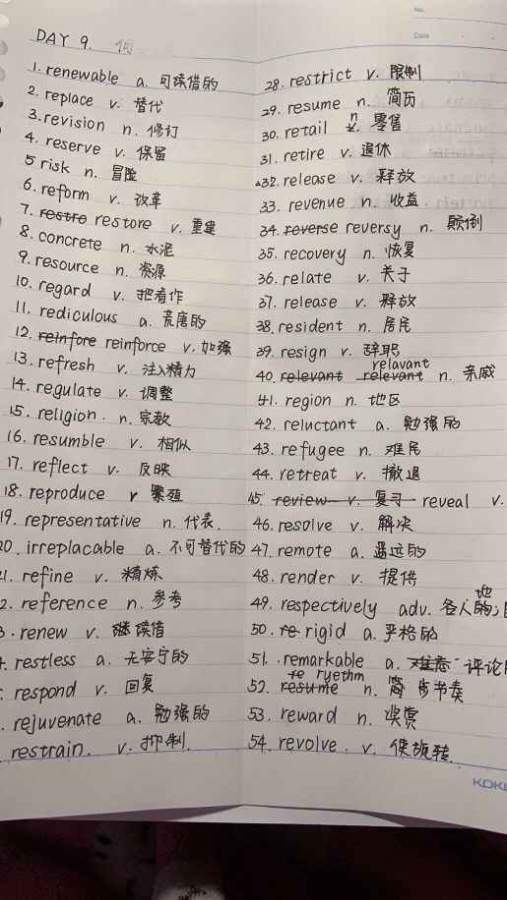 No.
Date
DAY 9.
1. renewable a. 可续借的
2. replace v. 替代
3. revision n. 修订
4. reserve v. 保留
5 risk n. 冒险
6. reform v. 改革
7. restro restore v. 重建
8. concrete n. 水泥
9. resource n. 资源
10. regard v. 把看作
11. rediculous a. 荒唐的
12. reinfore reinforce v. 加强
13. refresh v. 注入精力
14. regulate v. 调整
15. religion. n. 宗教
16. resumble v. 相似
17. reflect v. 反映
18. reproduce v 繁殖
19. representative n. 代表.
20. irreplacable a. 不可替代的
1. refine v. 精炼
2. reference n. 参考
3. renew v. 继续借
. restless a. 无安宁的
respond v. 回复
. rejuvenate a. 勉强的
restrain. v. 抑制.
28. restrict v. 限制
29. resume n. 简历
30. retail n. 零售
31. retire v. 退休
32. release v. 释放
33. revenue n. 收益
34. reverse reversy n. 颠倒
35. recovery n. 恢复
36. relate v. 关于
37. release v. 释放
38. resident n. 居民
39. resign v. 辞职
relavant
40. relevant relevant n. 亲戚
41. region n. 地区
42. reluctant a. 勉强的
43. refugee n. 难民
44. retreat v. 撤退
45. review v. 复习 reveal v.
46. resolve v. 解决
47. remote a. 遥远的
48. render v. 提供
49. respectively adv. 各人的地
50. re rigid a. 严格的
51. remarkable a. 难忘 评论
ryethm
52. resume n. 节奏
53. reward n. 奖赏
54. revolve. v. 使旋转.